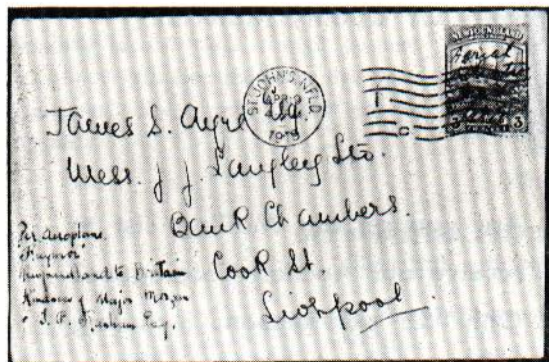 NEWFOUNDLAND
Aerial
3 CENTS 3
ST. JOHN'S NFLD
1919
James S. Ayre Esq
Mess. J J. Langley Sto.
Bank Chambers.
Cook St.
Liverpool
Per Aeroplane.
"Raynor"
Newfoundland to Britain
Kindness of Major Morgan
& F. P. Raynham Esq.